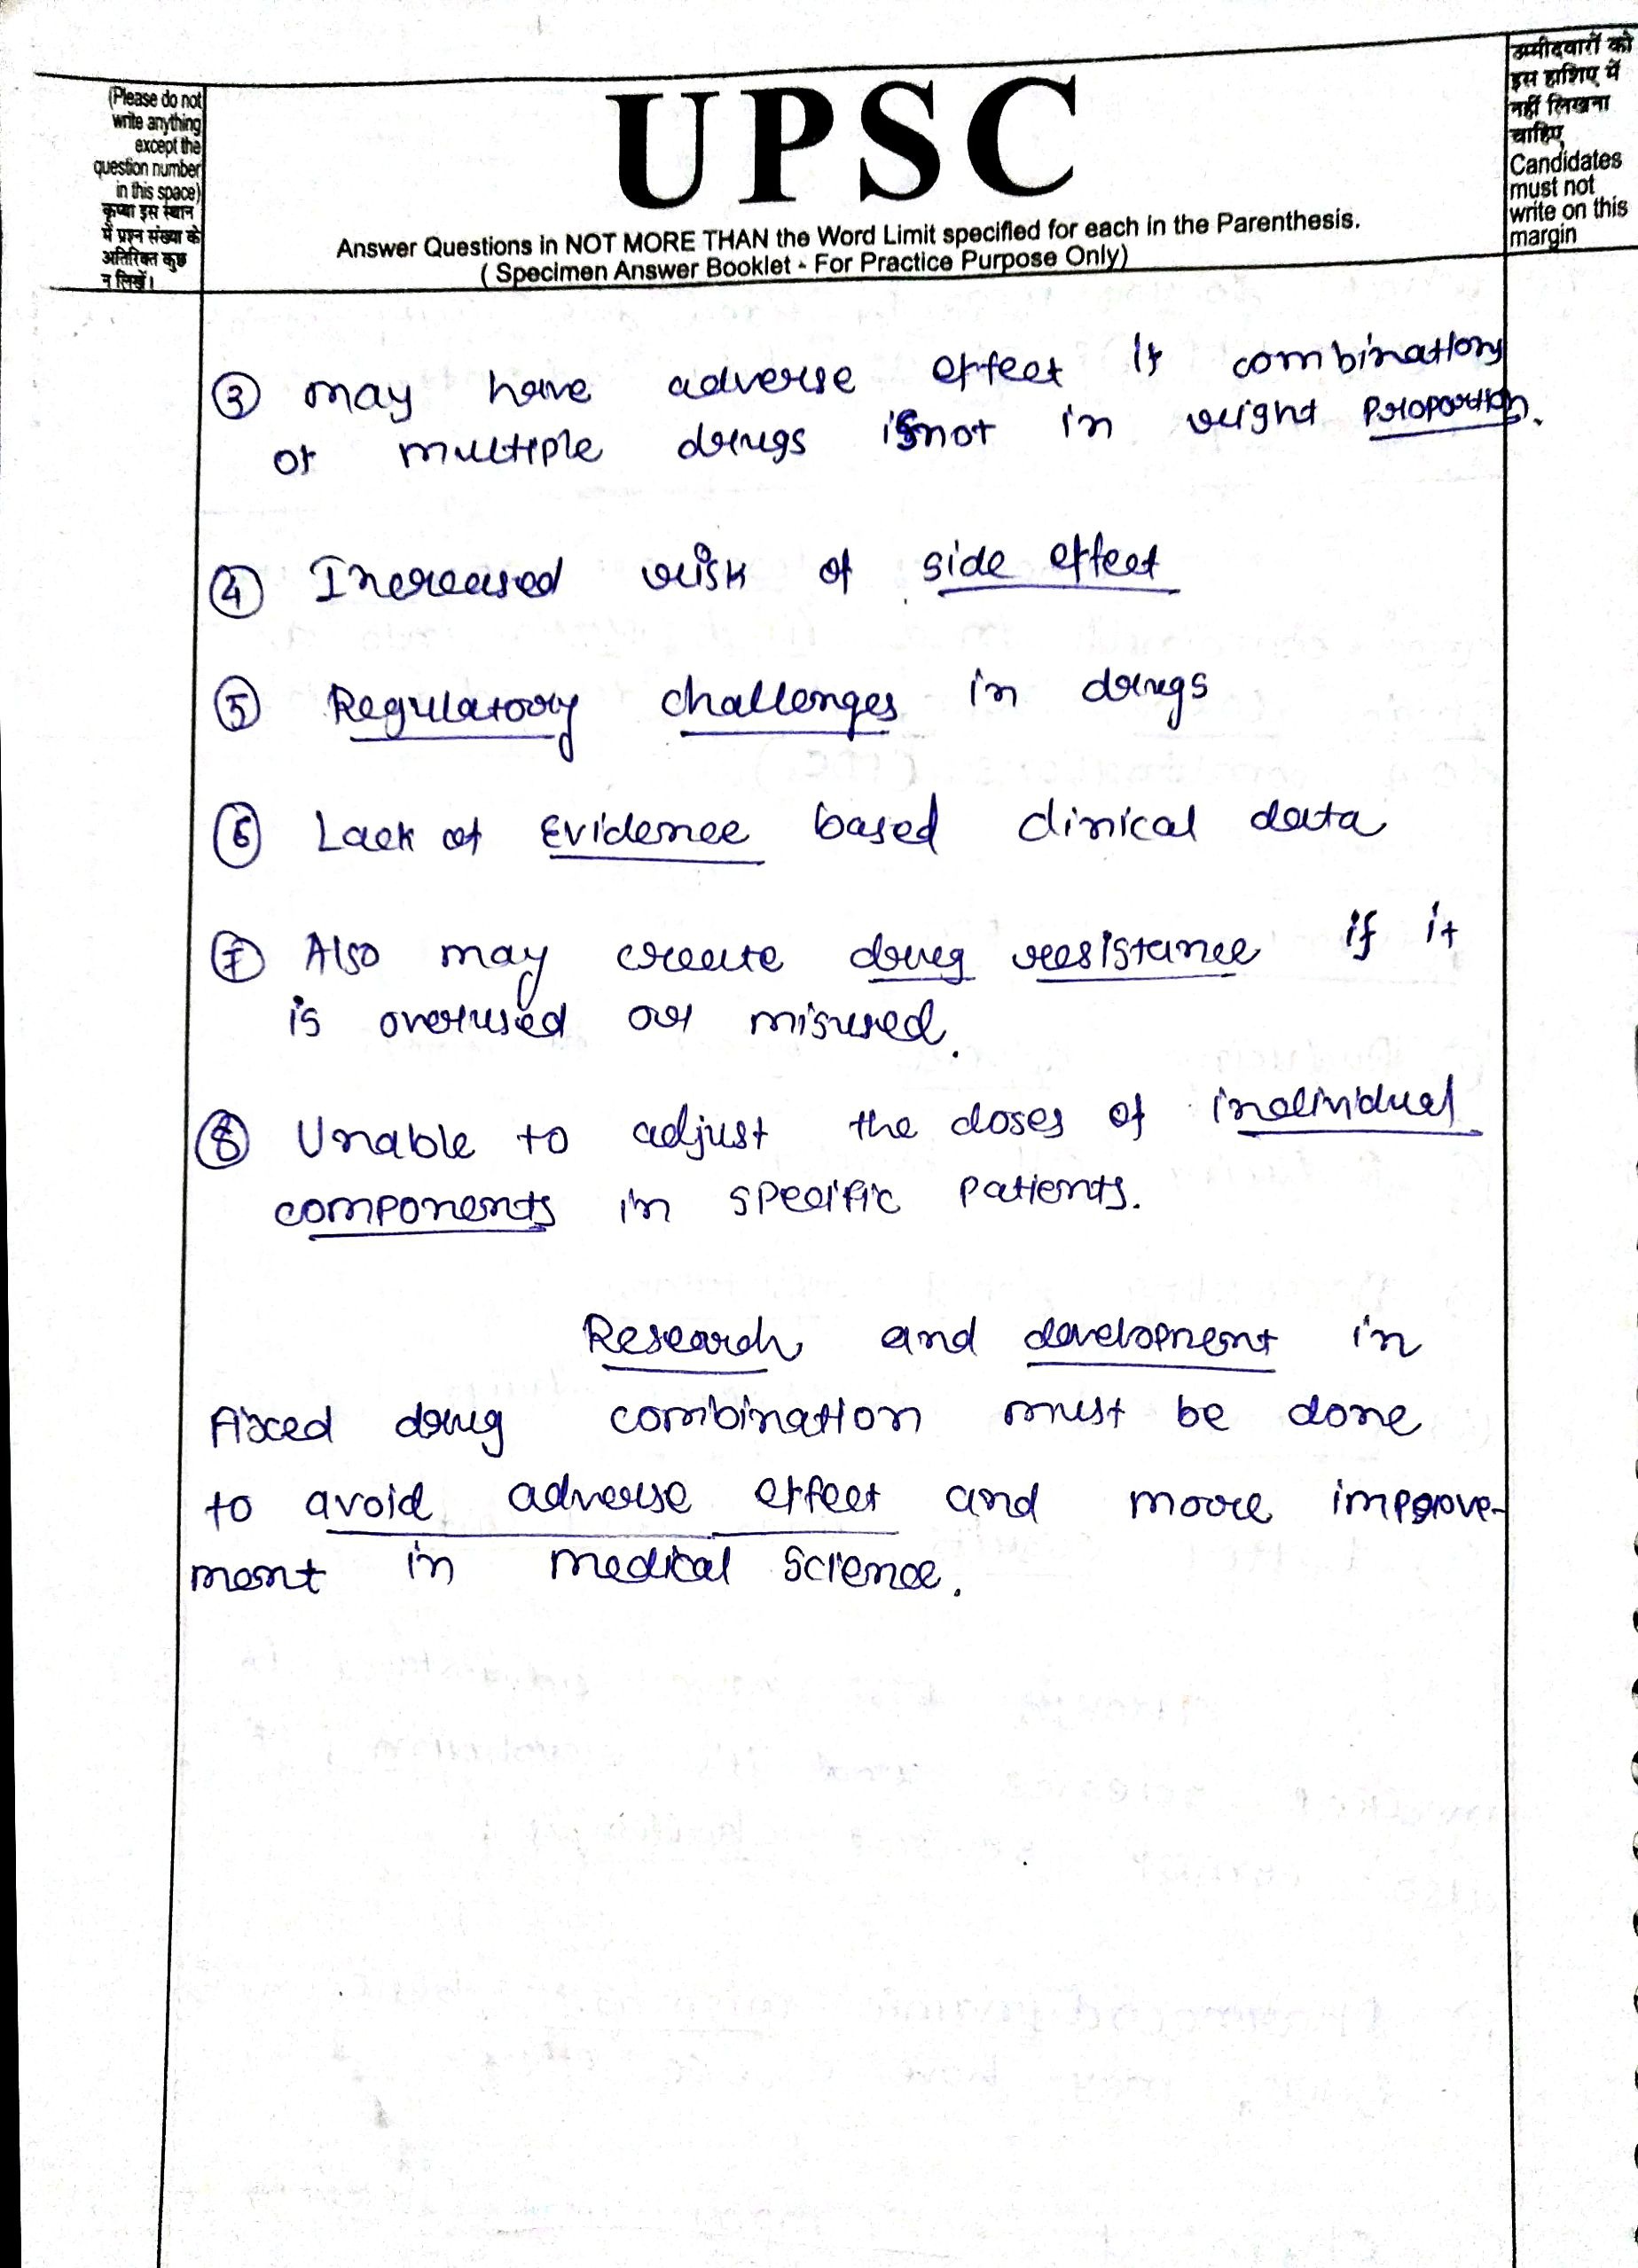 (Please do not
write anything
except the
question number
in this space)
कृप्या इस स्थान
में प्रश्न संख्या के
अतिरिक्त कुछ
न लिखें।
UPSC
Answer Questions in NOT MORE THAN the Word Limit specified for each in the Parenthesis.
( Specimen Answer Booklet - For Practice Purpose Only)
उम्मीदवारों को
इस हाशिए में
नहीं लिखना
चाहिए
Candidates
must not
write on this
margin
③ may have adverse effect if combinations
of multiple drugs is not in right proportion.
④ Increased risk of side effect
⑤ Regulatory challenges in drugs
⑥ Lack of Evidence based clinical data
⑦ Also may create drug resistance if it
is overused or misused.
⑧ Unable to adjust the doses of individual
components in specific patients.
Research and development in
fixed drug combination must be done
to avoid adverse effect and more improve-
ment in medical Science.